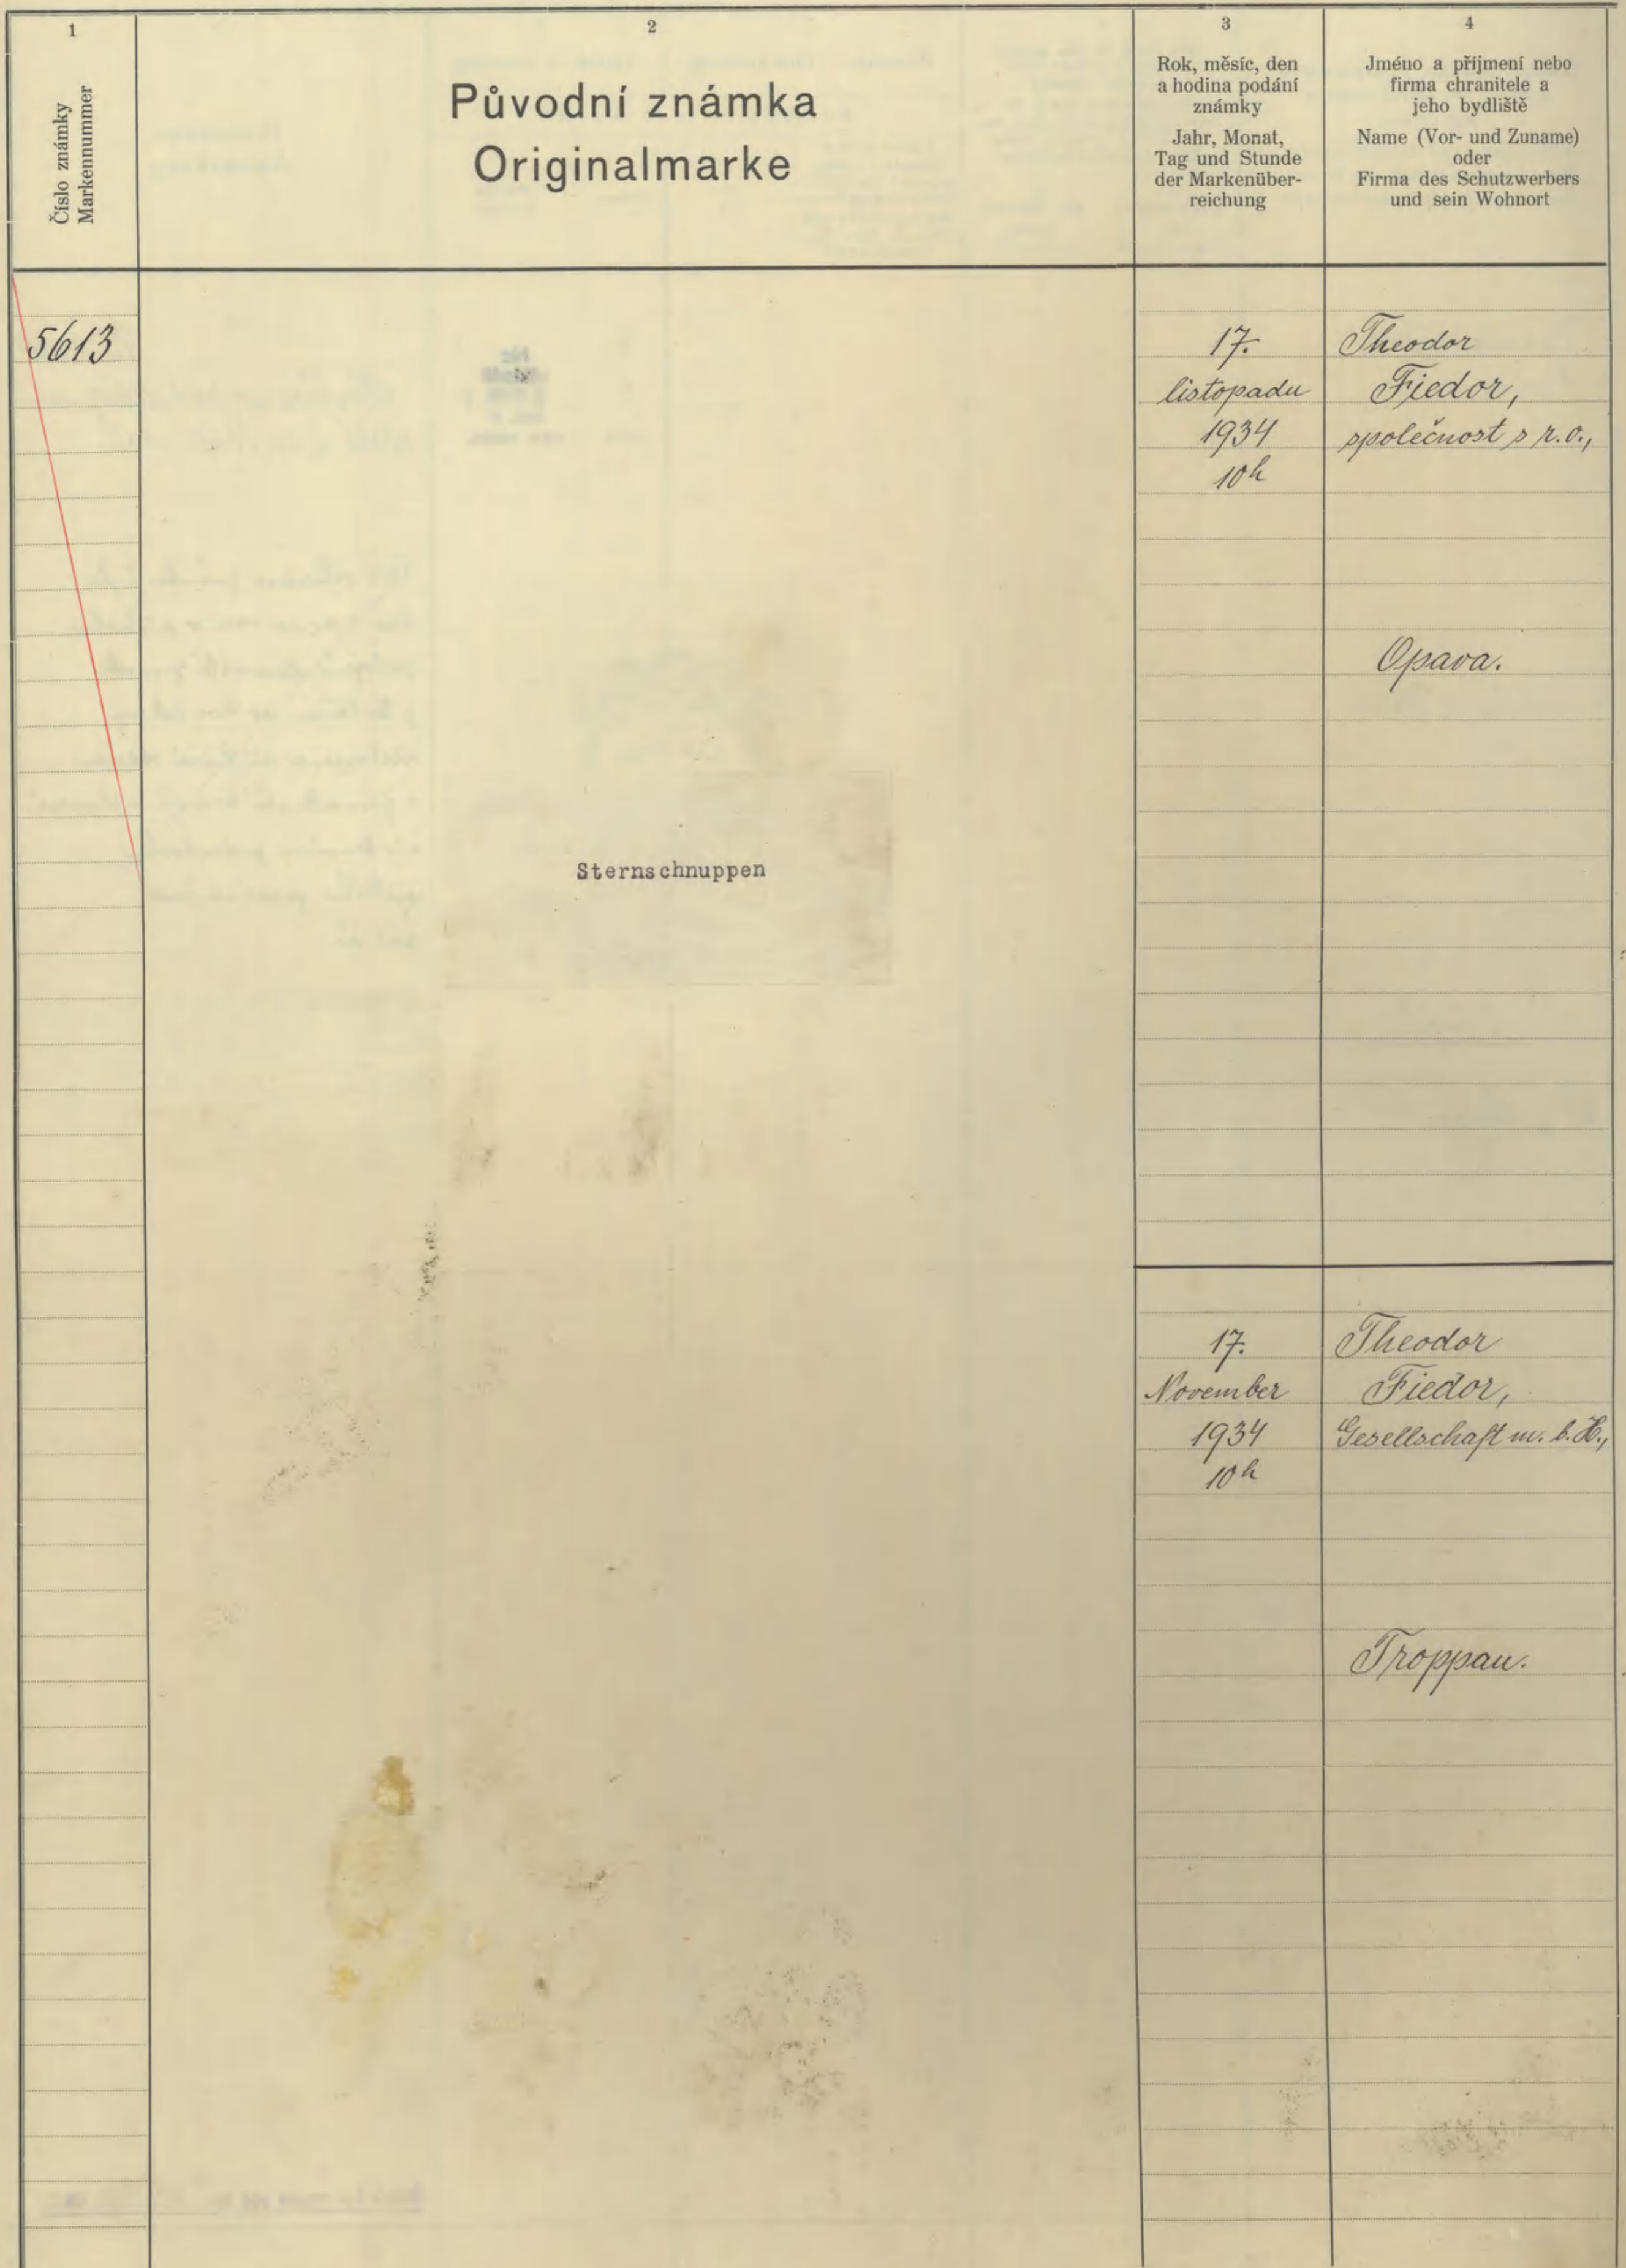 1
Číslo známky
Markennummer
2
Původní známka
Originalmarke
3
Rok, měsíc, den
a hodina podání
známky
Jahr, Monat,
Tag und Stunde
der Markenüber-
reichung
4
Jméno a příjmení nebo
firma chranitele a
jeho bydliště
Name (Vor- und Zuname)
oder
Firma des Schutzwerbers
und sein Wohnort
5613
Sternschnuppen
17.
listopadu
1934
10h
Theodor
Fiedor,
společnost s r.o.,
Opava.
17.
November
1934
10h
Theodor
Fiedor,
Gesellschaft m. b. H.,
Troppau.